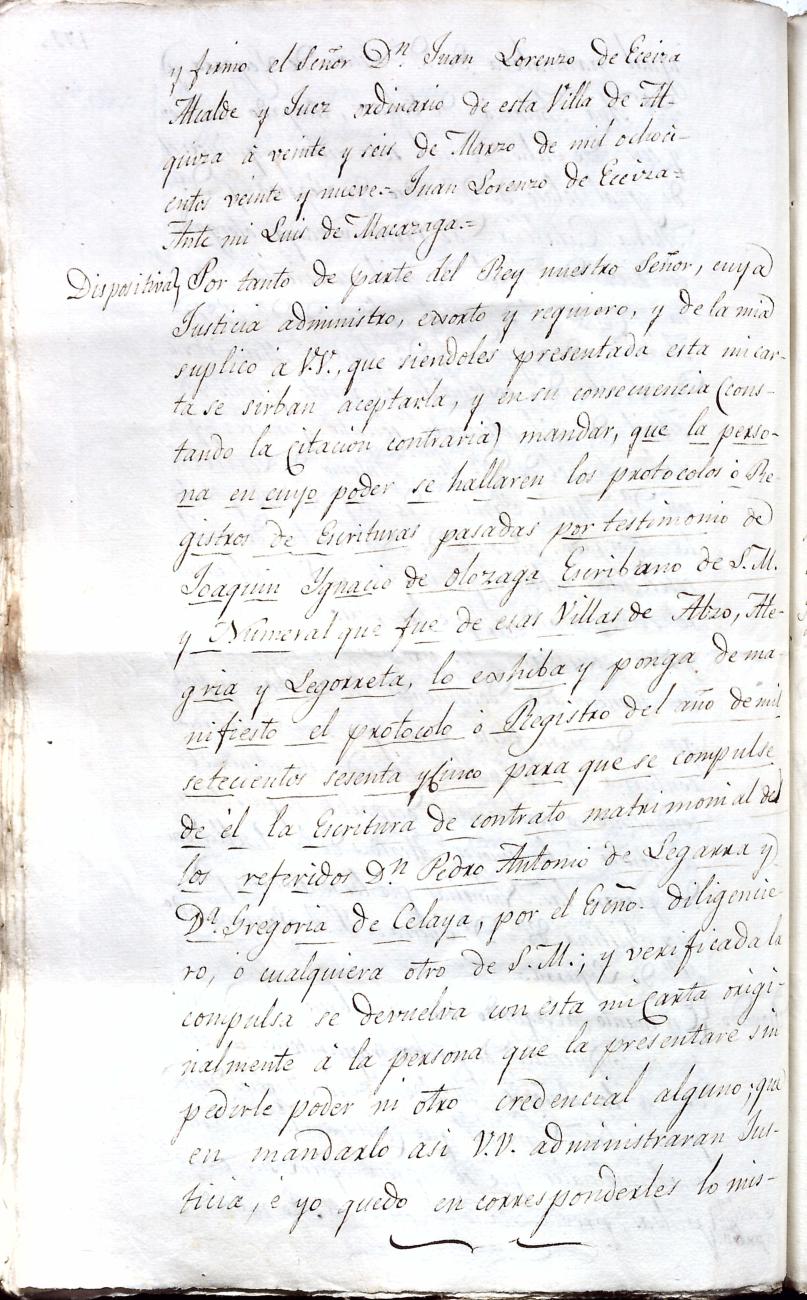 y firmo el Señor Dn. Juan Lorenzo de Eceiza
Alcalde y Juez ordinario de esta Villa de At-
quiza à veinte y seis de Marzo de mil ochoci-
entos veinte y nueve.= Juan Lorenzo de Eceiza=
Ante mi Luis de Macazaga.=
Dispositiva, Por tanto de parte del Rey nuestro Señor, cuya
Justicia administro, exorto y requiero, y de la mia
suplico à V.V., que siendoles presentada esta mi car-
ta se sirban aceptarla, y en su consecuencia (cons-
tando la Citacion contraria) mandar, que la perso-
na en cuyo poder se hallaren los protocolos ò Re-
gistros de Escrituras pasadas por testimonio de
Joaquin Ygnacio de Olozaga Escribano de S.M.
y Numeral que fue de esas Villas de Alzo, Ale-
gria y Legorreta, lo exhiba y ponga de ma-
nifiesto el protocolo ò Registro del año de mil
setecientos sesenta y cinco para que se compulse
de èl la Escritura de contrato matrimonial de
los referidos Dn. Pedro Antonio de Legarra y
Da. Gregoria de Celaya, por el Esno. diligencie-
ro, ò cualquiera otro de S.M.; y verificada la
compulsa se devuelva con esta mi Carta origi-
nalmente à la persona que la presentare sin
pedirle poder ni otro credencial alguno; que
en mandarlo asi V.V. administraran Jus-
ticia, è yo quedo en corresponderles lo mis-